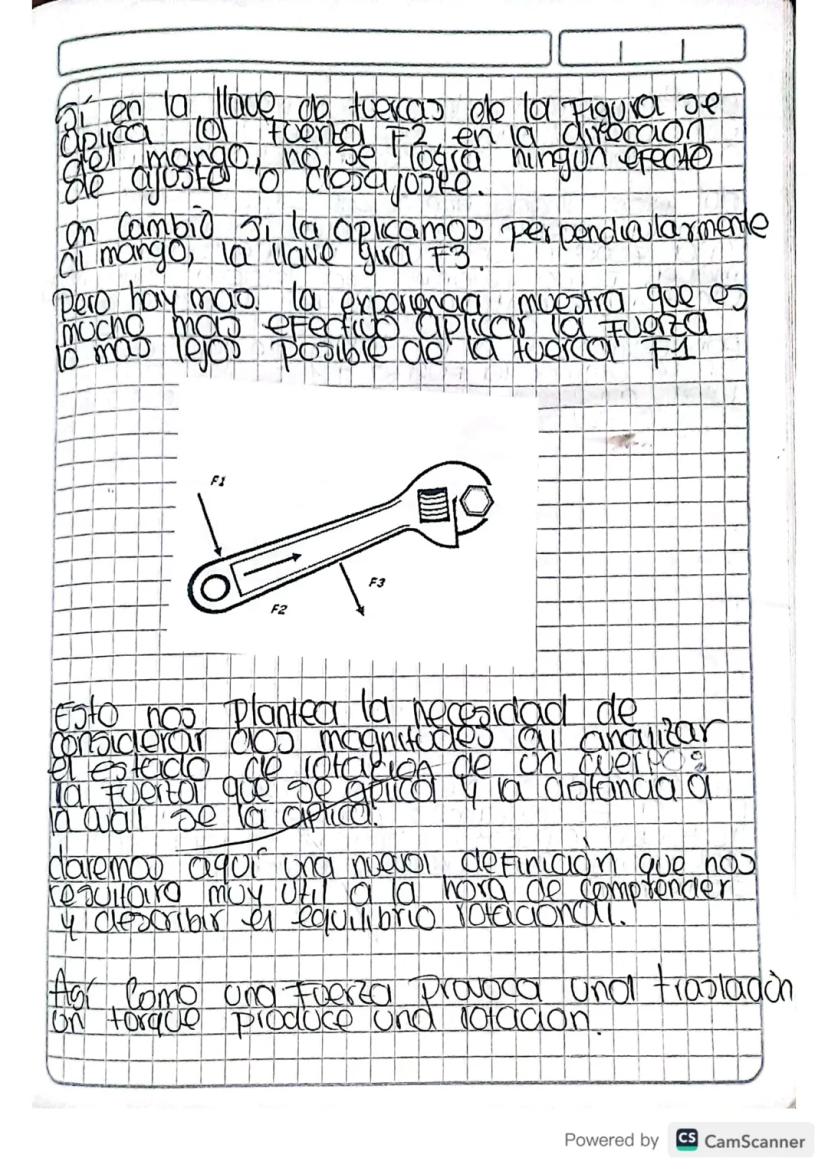 Si en la llave de tuercas de la Figura se
aplica la fuerza F2 en la dirección
del mango, no se logra ningún efecto
de ajuste o desajuste.
en cambio si la aplicamos perpendicularmente
al mango, la llave gira F3.
Pero hay mas. la experiencia muestra que es
mucho mas efectivo aplicar la Fuerza
lo mas lejos posible de la tuerca F1
F1
F3
F2
Esto nos plantea la necesidad de
considerar dos magnitudes al analizar
el estado de rotación de un cuerpo:
la Fuerza que se aplica y la distancia a
la cual se la aplica.
daremos aquí una nueva definición que nos
resultara muy útil a la hora de comprender
y describir el equilibrio rotacional.
Así como una Fuerza provoca una traslación
un torque produce una rotacion.
Powered by CS CamScanner